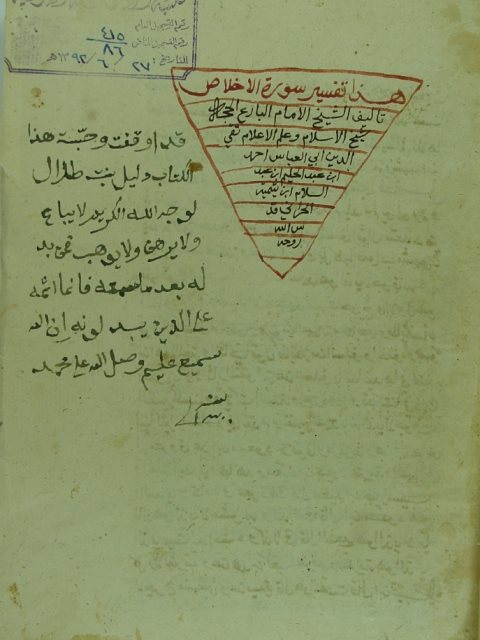 رقم التسجيل العام ٤١٥
رقم التسجيل الخاص ٨٦
التاريخ: ٢٧ / ٦ / ١٣٩٢هـ
هذا تفسير سورة الاخلاص
تاليف الشيخ الامام البارع
شيخ الاسلام وعلم الاعلام تقي
الدين ابي العباس احمد
ابن عبد الحليم ابن عبد
السلام ابن تيمية
الحراني قد
س الله
روحه
قد اوقفت وحبسة هذا
الكتاب دليل بنت طلال
لوجه الله الكريم لا يباع
ولا يرهن ولا يوهب فمن بد
له بعد ما سمعه فانما اثمه
على الذين يبدلونه ان الله
سميع عليم وصل الله على محمد